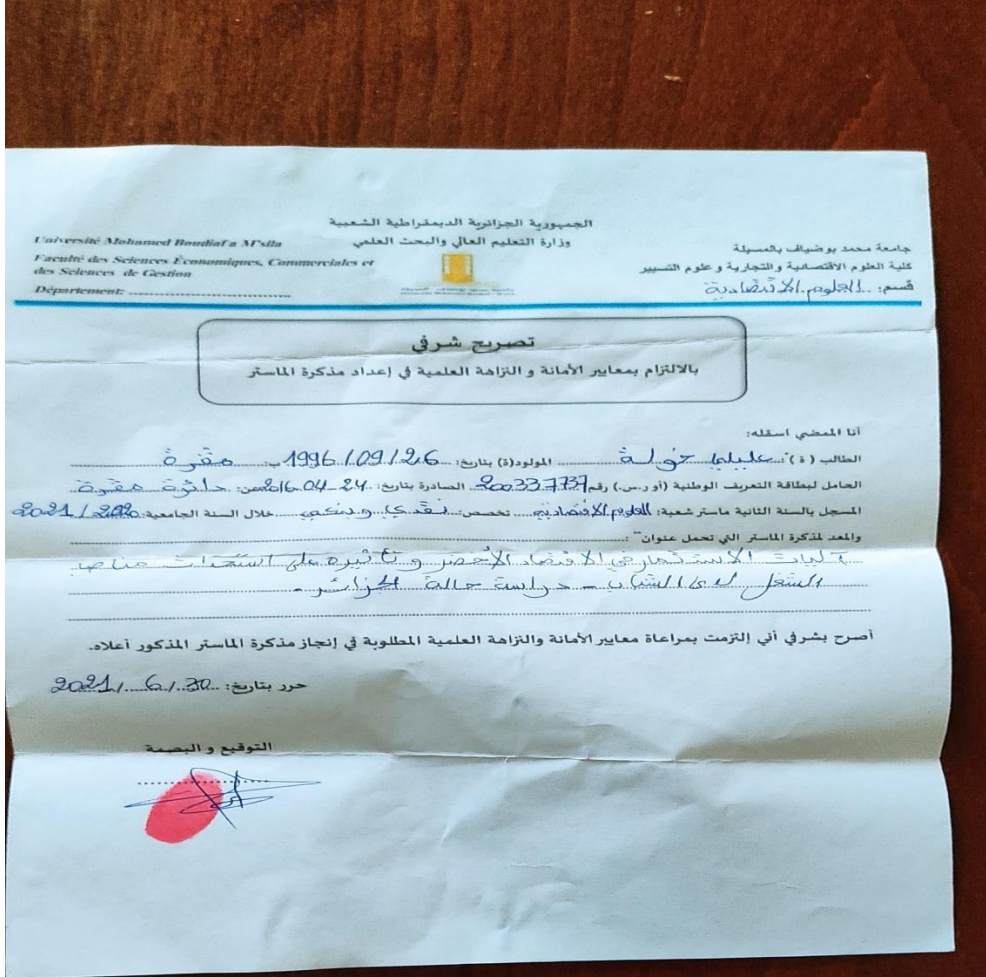 الجمهورية الجزائرية الديمقراطية الشعبية
وزارة التعليم العالي والبحث العلمي
Université Mohamed Boudiaf a M'sila
Faculté des Sciences Économiques, Commerciales et
des Sciences de Gestion
Département:
جامعة محمد بوضياف بالمسيلة
كلية العلوم الاقتصادية والتجارية و علوم التسيير
قسم: العلوم الاقتصادية
تصريح شرفي
بالالتزام بمعايير الأمانة و النزاهة العلمية في إعداد مذكرة الماستر
أنا الممضي اسفله:
الطالب ( ة ): عليلي خولة المولود(ة) بتاريخ: 1996/09/26 ب: مقرة
الحامل لبطاقة التعريف الوطنية (أو ر.س.) رقم 200337737 الصادرة بتاريخ: 24-04-2016 عن: دائرة مقرة
المسجل بالسنة الثانية ماستر شعبة: العلوم الاقتصادية تخصص: نقدي وبنكي خلال السنة الجامعية: 2020/2021
والمعد لمذكرة الماستر التي تحمل عنوان" :
آليات الاستثمار في الاقتصاد الأخضر وتأثيره على استحداث مناصب
الشغل لدى الشباب - دراسة حالة الجزائر -
أصرح بشرفي أني إلتزمت بمراعاة معايير الأمانة والنزاهة العلمية المطلوبة في إنجاز مذكرة الماستر المذكور أعلاه.
حرر بتاريخ: 30/6/2021
التوقيع و البصمة